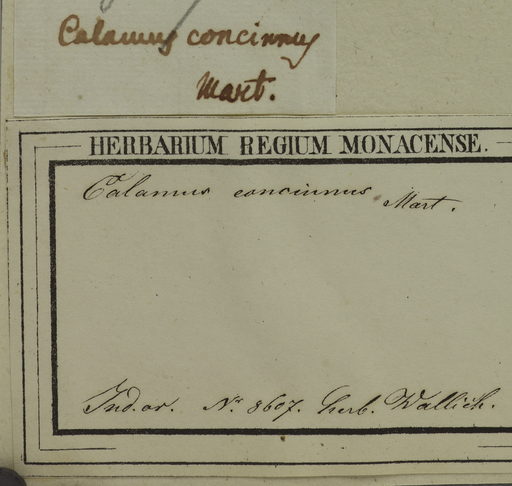 Calamus concinnus
Mart.
HERBARIUM REGIUM MONACENSE.
Calamus concinnus Mart.
Ind. or. Nr. 8607. herb. Wallich.